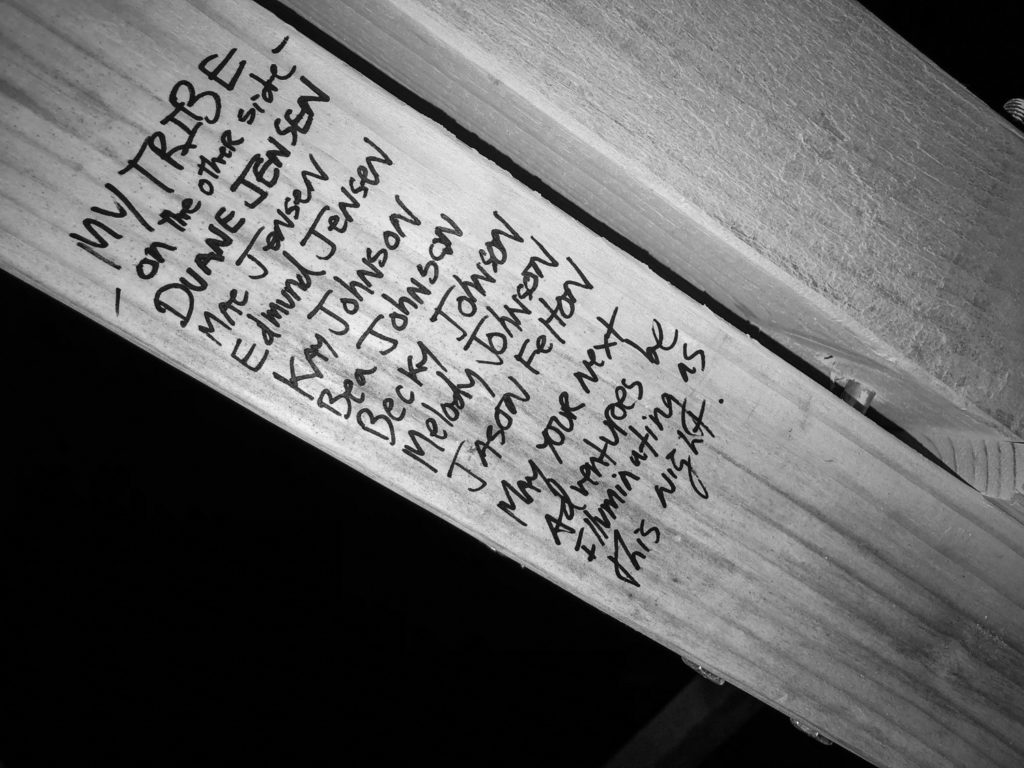 MY TRIBE
- on the other side -
DUANE JENSEN
MAE JENSEN
Edmund JENSEN
KAY JOHNSON
Bea JOHNSON
Becky JOHNSON
Melody JOHNSON
JASON FELTON
MAY YOUR NEXT
AdVENTURES be
Illuminating as
this night.